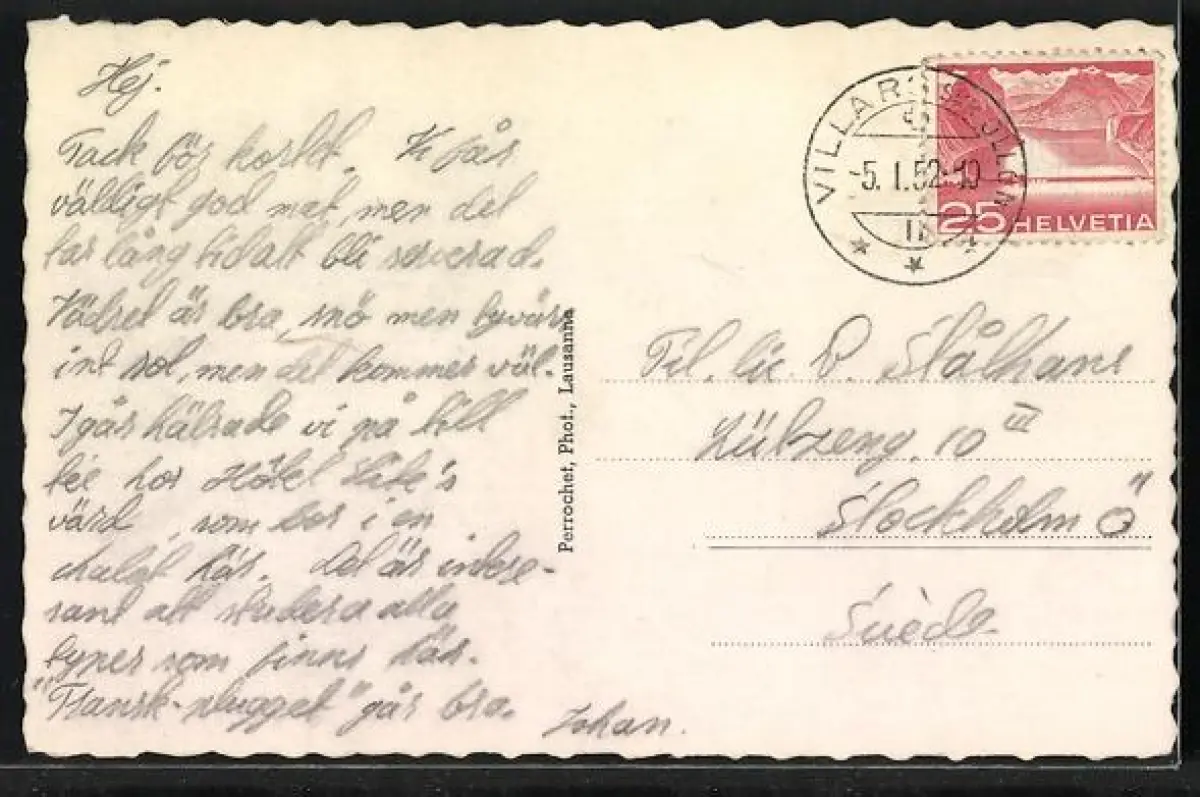 Hej.
Tack för kortet. Vi får
väldigt god mat, men det
tar lång tid att bli serverad.
Vädret är bra, snö men tyvärr
int sol, men det kommer väl.
Igår hälsade vi på till
tée hos Hôtel
värd, som bor i en
här. Det är intre-
sant att studera alla
typer som finns här.
"Fransk-plugget" går bra. Johan.
Perrochet, Phot., Lausanne
VILLARS S. OLLON
-5.1.52-10
25 HELVETIA
Fil. lic. P. Stålhane
10 III
Stockholm Ö
Suède